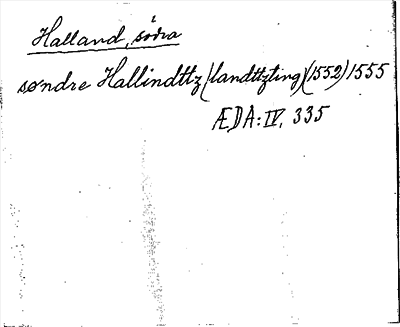 Halland, södra
søndre Hallindttz (landttzting) (1552) 1555
ÆDA: IV, 335